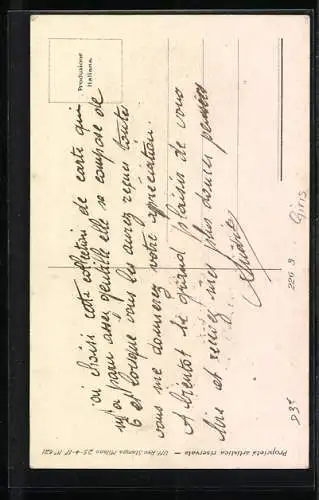 Produzione
Italiana.
J'ai choisi cette collection de carte qui
m'a paru assez gentille elle se compose de
6 et lorsque vous les aurez reçus toutes
vous me donnerez votre appréciation.
A bientôt le grand plaisir de vous
lire et recevez mes plus douces pensées
Proprietà artistica riservata — Uff. Rev. Stampa Milano 25-4-17 N° 621
226 3